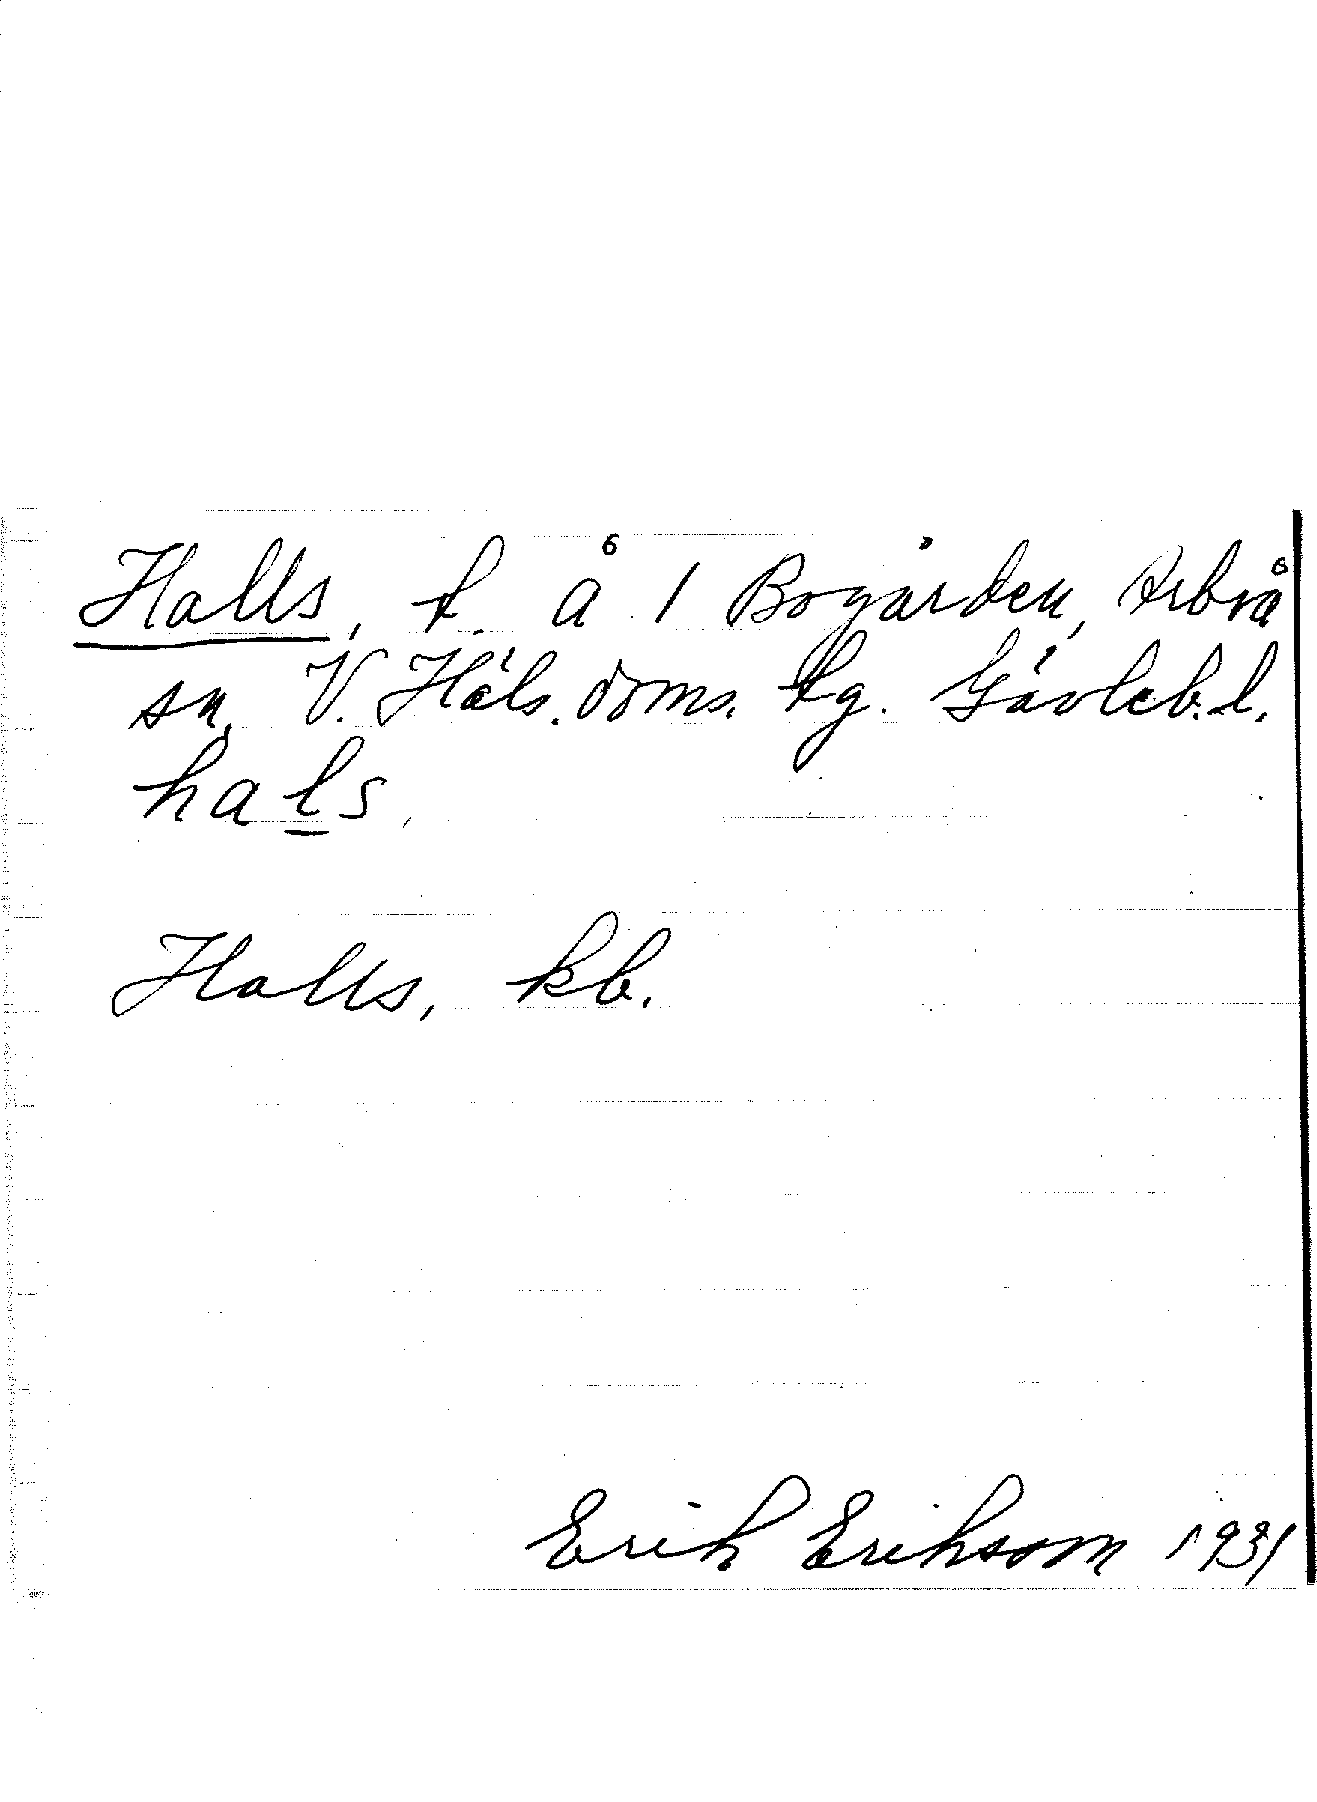 Halls, t. å 1 Bogården, Arbrå
sn. V. Häls. doms. tg. Gävleb. l.
hals.
Halls, kb.
Erik Erikson 1931